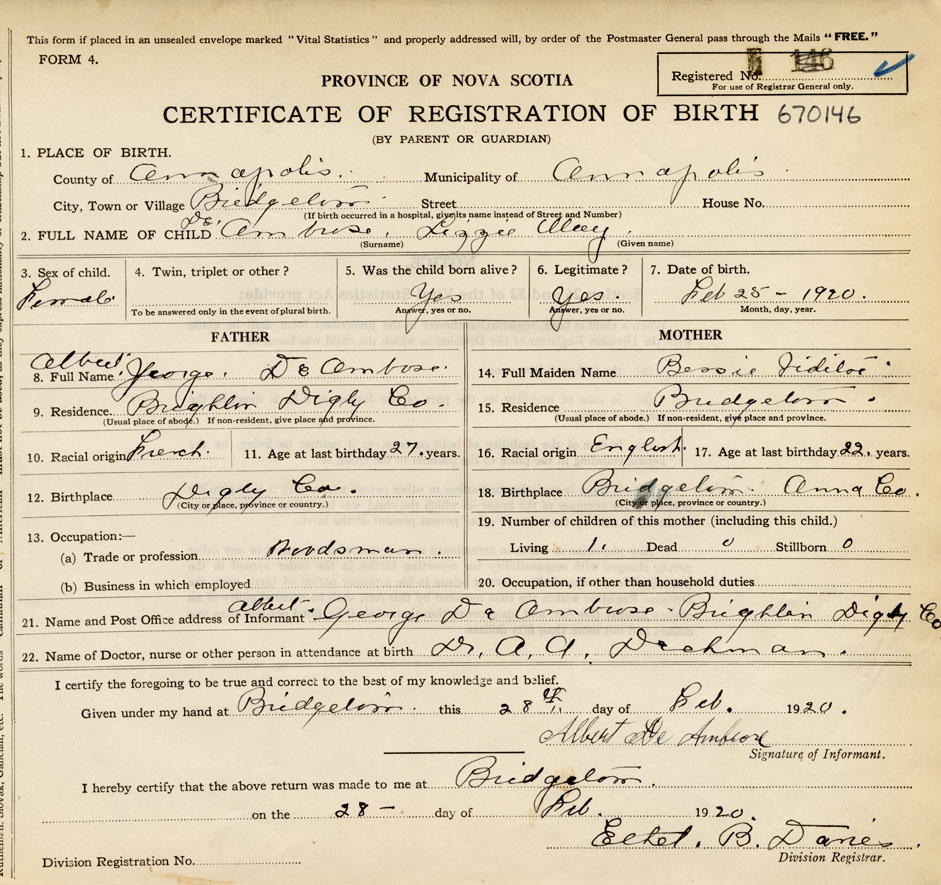 This form if placed in an unsealed envelope marked "Vital Statistics" and properly addressed will, by order of the Postmaster General pass through the Mails "FREE."
FORM 4.
Registered No. 146
For use of Registrar General only.
PROVINCE OF NOVA SCOTIA
CERTIFICATE OF REGISTRATION OF BIRTH 670146
(BY PARENT OR GUARDIAN)
1. PLACE OF BIRTH.
County of Annapolis. Municipality of Annapolis
City, Town or Village Bridgetown Street House No.
(If birth occurred in a hospital, give its name instead of Street and Number)
2. FULL NAME OF CHILD De Ambrose. Lizzie May.
(Surname) (Given name)
3. Sex of child. 4. Twin, triplet or other? 5. Was the child born alive? 6. Legitimate? 7. Date of birth.
Female Yes Yes. Feb 25 - 1920.
To be answered only in the event of plural birth. Answer, yes or no. Answer, yes or no. Month, day, year.
FATHER MOTHER
8. Full Name Albert George. De Ambrose. 14. Full Maiden Name Bessie
9. Residence. Brighton Digby Co. 15. Residence Bridgetown.
(Usual place of abode.) If non-resident, give place and province. (Usual place of abode.) If non-resident, give place and province.
10. Racial origin French. 11. Age at last birthday 27. years. 16. Racial origin English. 17. Age at last birthday 22. years.
12. Birthplace Digby Co. 18. Birthplace Bridgetown Anna Co.
(City or place, province or country.) (City or place, province or country.)
13. Occupation:— 19. Number of children of this mother (including this child.)
(a) Trade or profession Woodsman. Living 1. Dead 0 Stillborn 0
(b) Business in which employed 20. Occupation, if other than household duties
21. Name and Post Office address of Informant Albert George De Ambrose - Brighton Digby Co
22. Name of Doctor, nurse or other person in attendance at birth Dr. A. A. Dechman.
I certify the foregoing to be true and correct to the best of my knowledge and belief.
Given under my hand at Bridgetown this 28th day of Feb. 1920.
Albert De Ambrose
Signature of Informant.
I hereby certify that the above return was made to me at Bridgetown.
on the 28 - day of Feb. 1920.
Ethel. B. Davies.
Division Registrar.
Division Registration No.